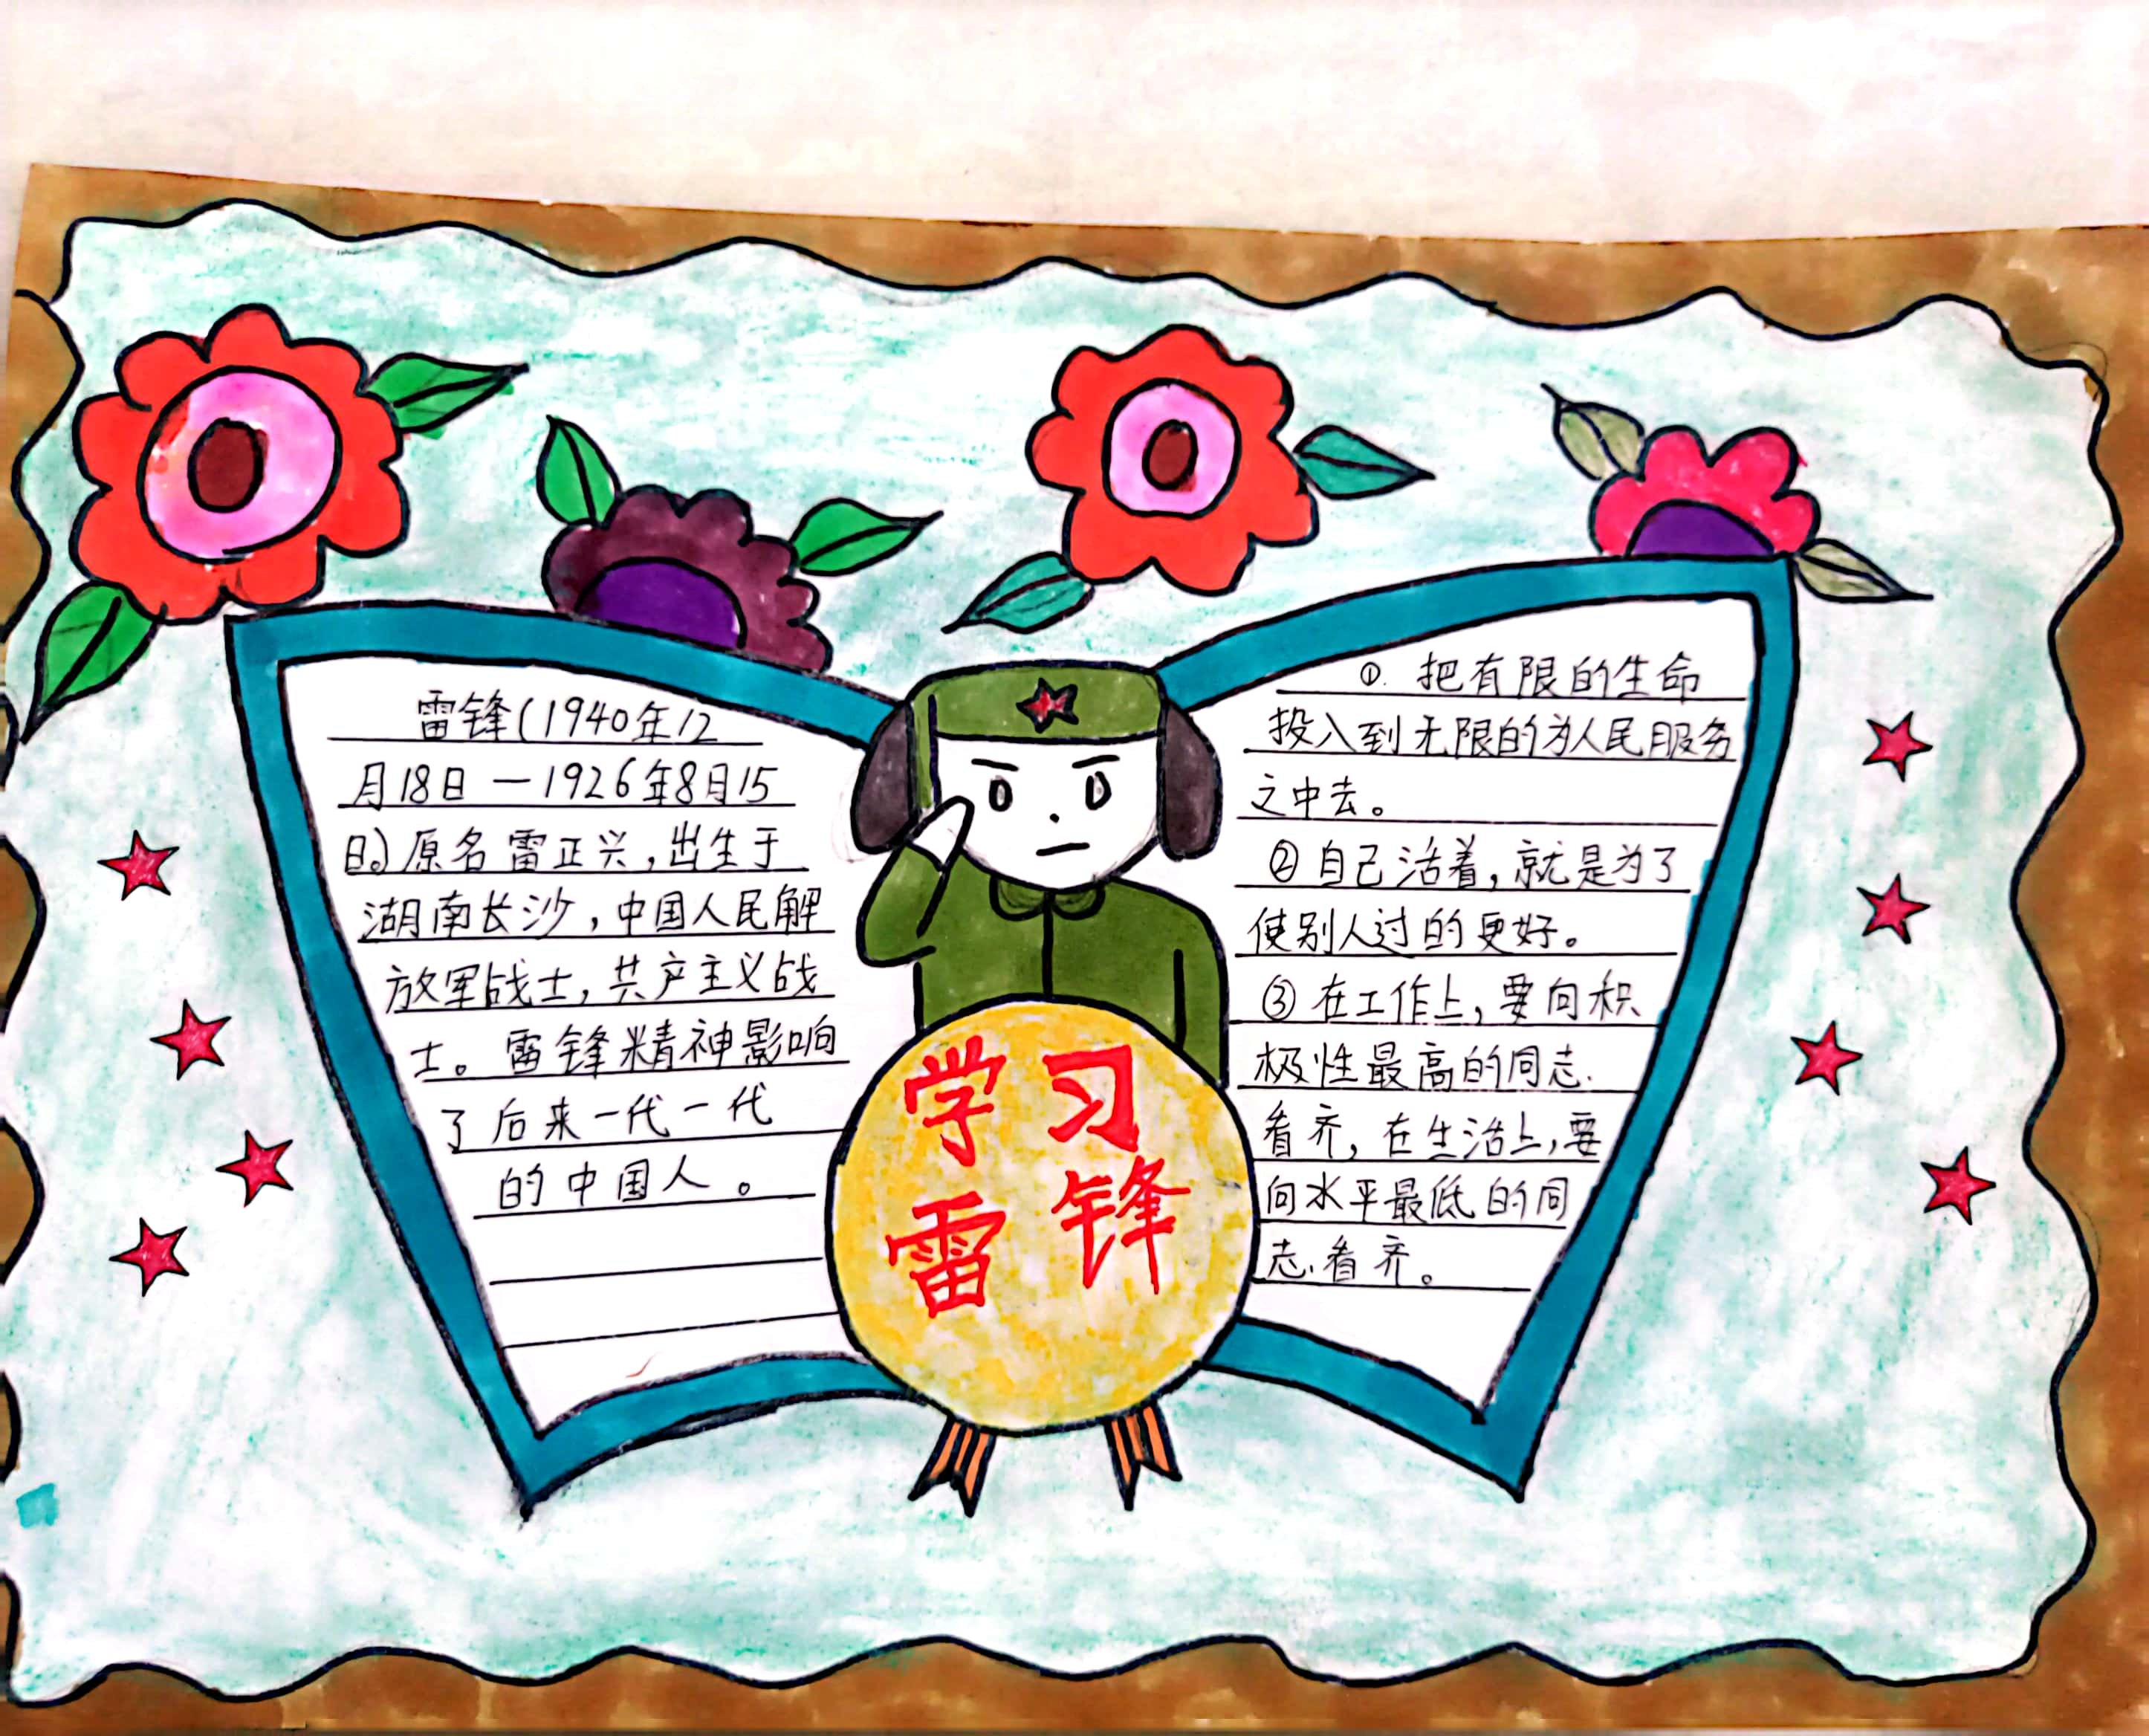 雷锋(1940年12
月18日—1926年8月15
日。)原名雷正兴,出生于
湖南长沙,中国人民解
放军战士,共产主义战
士。雷锋精神影响
了后来一代一代
的中国人。
①.把有限的生命
投入到无限的为人民服务
之中去。
②自己活着,就是为了
使别人过的更好。
③在工作上,要向积
极性最高的同志.
看齐,在生活上,要
向水平最低的同
志.看齐。
学习
雷锋